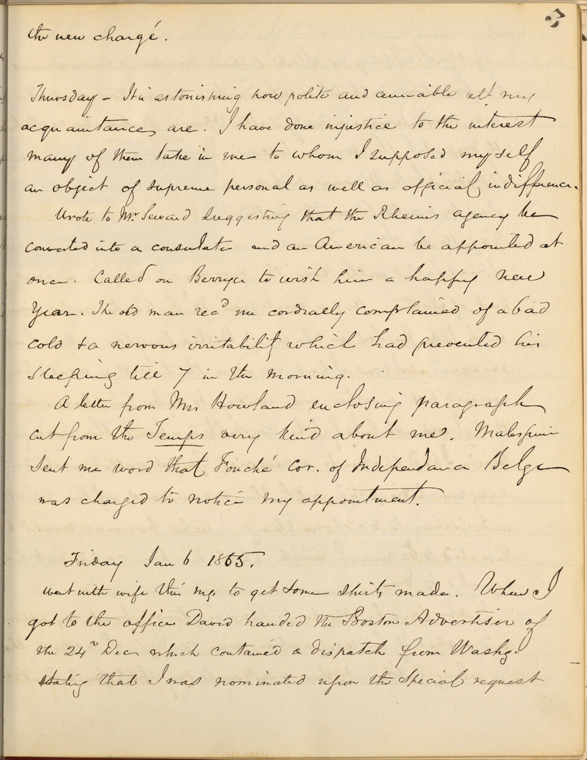 3
the new chargé.
Thursday – It is astonishing how polite and amiable all my
acquaintances are. I have done injustice to the interest
many of them take in me to whom I supposed myself
an object of supreme personal as well as official indifference.
Wrote to Mr Seward suggesting that the Rheims agency be
converted into a consulate and an American be appointed at
once. Called on Berryer to wish him a happy new
Year. The old man recd me cordially complained of a bad
cold & a nervous irritability which had prevented his
sleeping till 7 in the morning.
A letter from Mrs Howland enclosing paragraph
cut from the Temps very kind about me. Malespine
sent me word that Fouché cor. of Independance Belge
was charged to notice my appointment.
Friday Jan 6 1865.
went with wife this mg. to get some shirts made. When I
got to the office David handed the Boston Advertiser of
the 24th Dec which contained a dispatch from Washg.
stating that I was nominated upon the special request